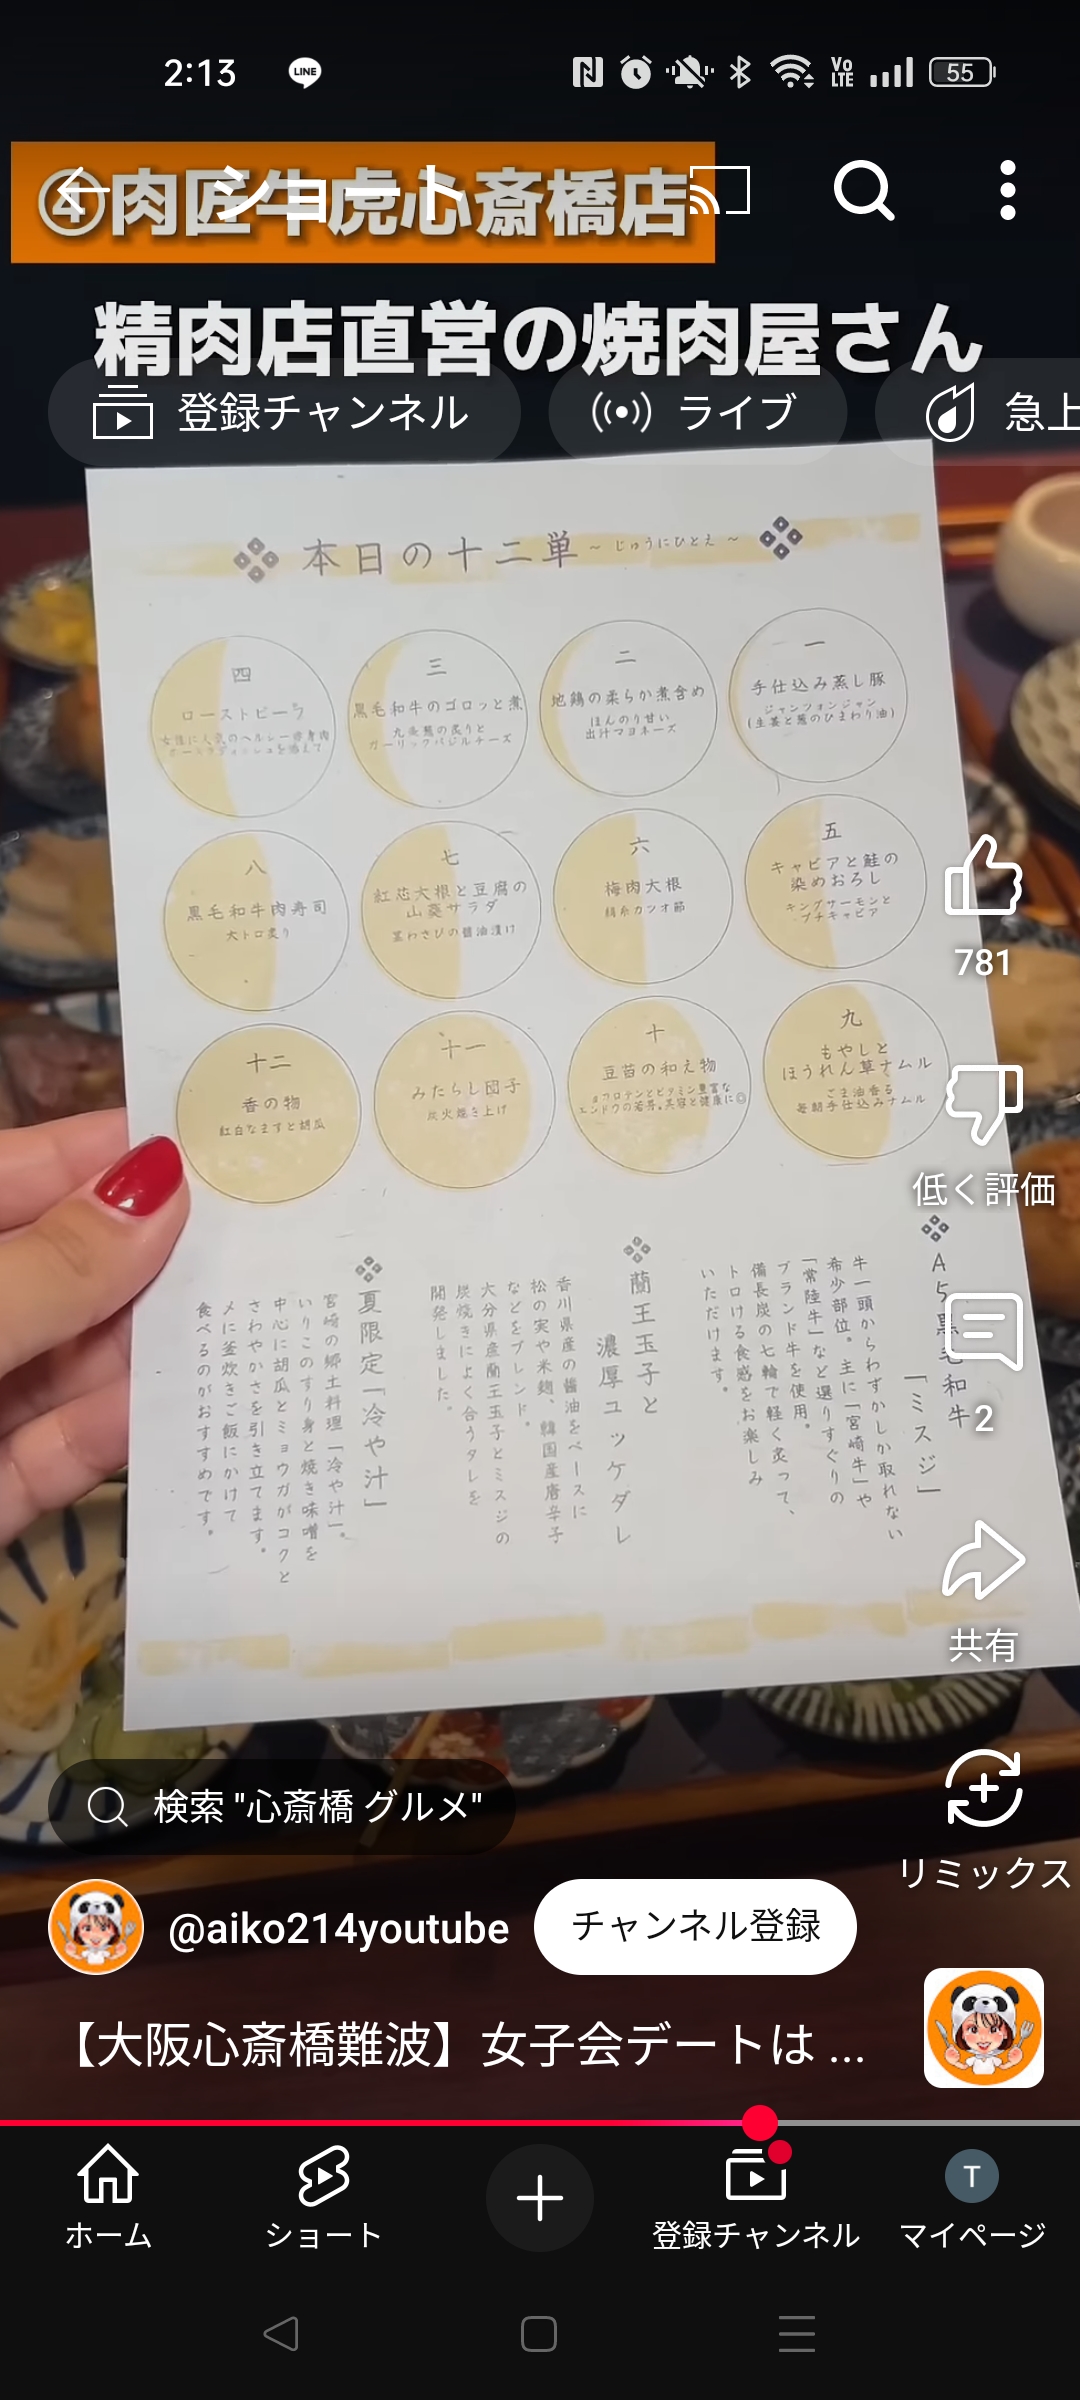 2:13
LINE
Vo
LTE
55
④肉匠牛虎心斎橋店
ショート
精肉店直営の焼肉屋さん
登録チャンネル
ライブ
急上
本日の十二単~じゅうにひとえ~
一
手仕込み蒸し豚
ジャンツォンジャン
(生姜と葱のひまわり油)
二
地鶏の柔らか煮含め
ほんのり甘い
出汁マヨネーズ
三
黒毛和牛のゴロッと煮
九条葱の炙りと
ガーリックバジルチーズ
四
ローストビーフ
女性に人気のヘルシー赤身肉
ホースラディッシュを添えて
五
キャビアと鮭の
染めおろし
キングサーモンと
プチキャビア
六
梅肉大根
絹糸カツオ節
七
紅芯大根と豆腐の
山葵サラダ
茎わさびの醤油漬け
八
黒毛和牛肉寿司
大トロ炙り
九
もやしと
ほうれん草ナムル
ごま油香る
毎朝手仕込みナムル
十
豆苗の和え物
βカロテンとビタミン豊富な
エンドウの若芽。美容と健康に◎
十一
みたらし団子
炭火焼き上げ
十二
香の物
紅白なますと胡瓜
A5黒毛和牛
「ミスジ」
牛一頭からわずかしか取れない
希少部位。主に「宮崎牛」や
「常陸牛」など選りすぐりの
ブランド牛を使用。
備長炭の七輪で軽く炙って、
トロける食感をお楽しみ
いただけます。
蘭王玉子と
濃厚ユッケダレ
香川県産の醤油をベースに
松の実や米麹、韓国産唐辛子
などをブレンド。
大分県産蘭王玉子とミスジの
炭焼きによく合うタレを
開発しました。
夏限定「冷や汁」
宮崎の郷土料理「冷や汁」。
いりこのすり身と焼き味噌を
中心に胡瓜とミョウガがコクと
さわやかさを引き立てます。
〆に釜炊きご飯にかけて
食べるのがおすすめです。
781
低く評価
2
共有
リミックス
検索 "心斎橋 グルメ"
@aiko214youtube
チャンネル登録
【大阪心斎橋難波】女子会デートは ...
ホーム
ショート
登録チャンネル
T
マイページ